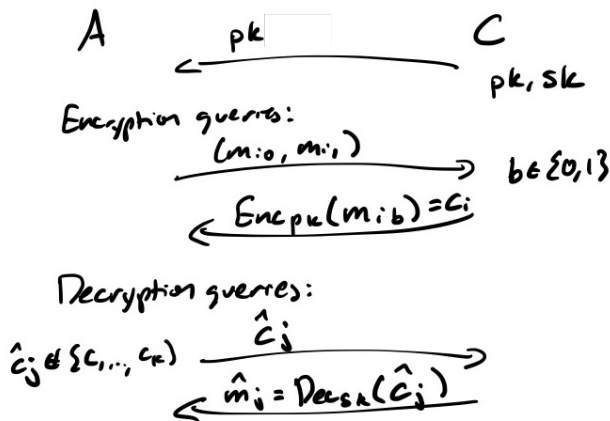 A
C
pk
pk, sk
Encryption queries:
(m_{i0}, m_{i1})
b ∈ {0,1}
Enc_{pk}(m_{ib}) = c_i
Decryption querries:
ĉ_j ∉ {c_1, ..., c_k)
ĉ_j
m̂_j = Dec_{sk}(ĉ_j)